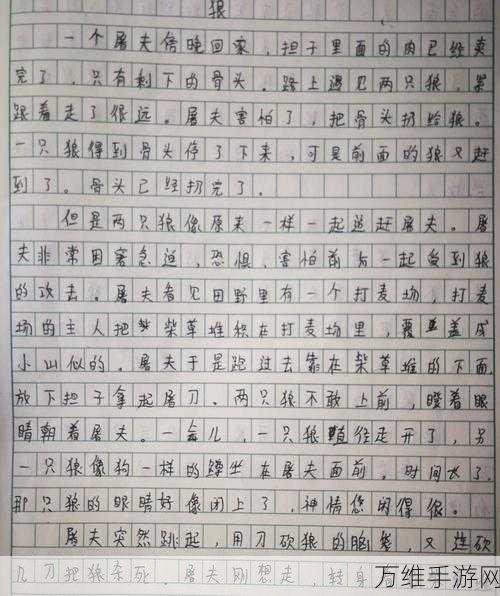 狼
一个屠夫傍晚回家，担子里面的肉已经卖
完了，只有剩下的骨头。路上遇见两只狼，紧
跟着走了很远。屠夫害怕了，把骨头扔给狼。
一只狼得到骨头停了下来，可是前面的狼又赶
到了。骨头已经扔完了。
但是两只狼像原来一样一起追赶屠夫。屠
夫非常困窘急迫，恐惧，害怕前后一起受到狼
的攻击。屠夫看见田野里有一个打麦场，打麦
场的主人把柴草堆积在打麦场里，覆盖成
小山似的。屠夫于是跑过去靠在柴草堆的下面，
放下担子拿起屠刀。两只狼不敢上前，瞪着眼
睛朝着屠夫。一会儿，一只狼径走开了，另
一只狼像狗一样的蹲坐在屠夫面前。时间长了，
那只狼的眼睛好像闭上了，神情悠闲得很。
屠夫突然跳起，用刀砍狼的脑袋，又连砍
几刀把狼杀死。屠夫刚想走，转身
万维手游网